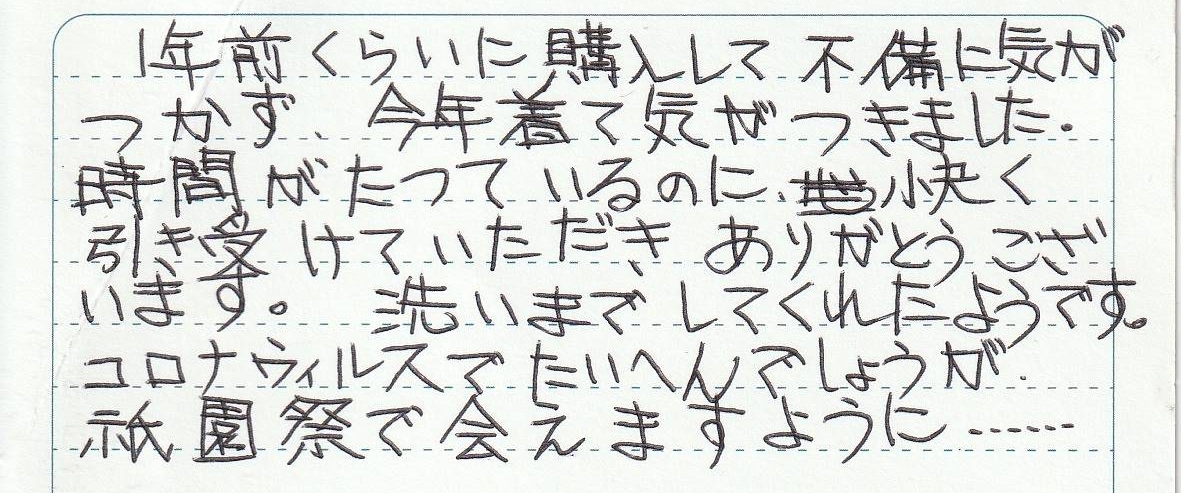 1年前くらいに購入して不備に気が
つかず、今年着て気がつきました.
時間がたつているのに、快く
引き受けていただきありがとうござ
います。 洗いまでしてくれたようです。
コロナウィルスでたいへんでしょうが.
祇園祭で会えますように……